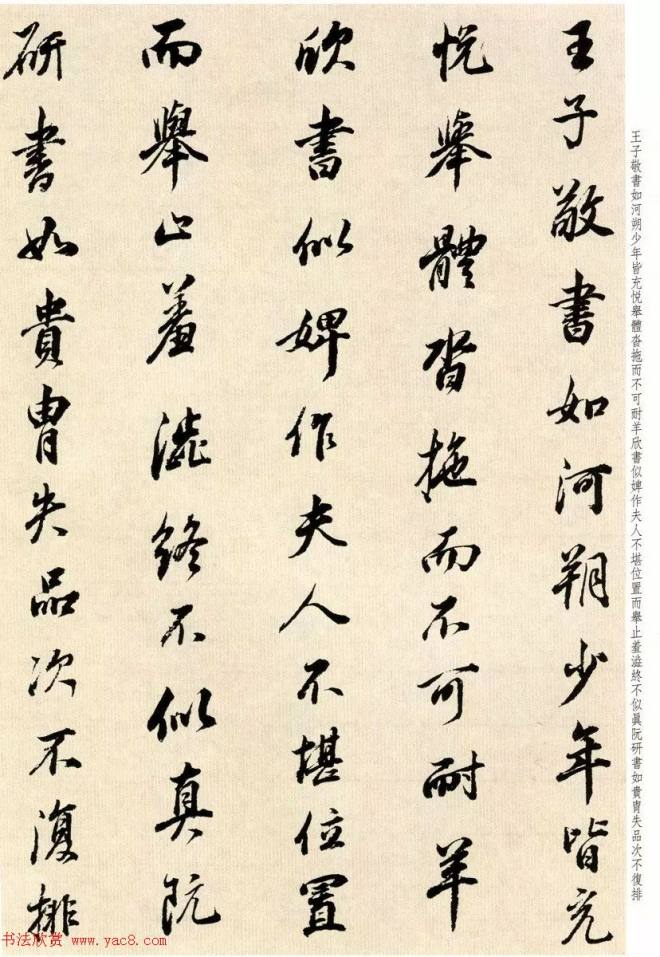 王子敬書如河朔少年皆充
悅舉體沓拖而不可耐羊
欣書似婢作夫人不堪位置
而舉止羞澁終不似真阮
研書如貴胄失品次不復排
王子敬書如河朔少年皆充悅舉體沓拖而不可耐羊欣書似婢作夫人不堪位置而舉止羞澁終不似眞阮研書如貴胄失品次不復排
书法欣赏 www.yac8.com